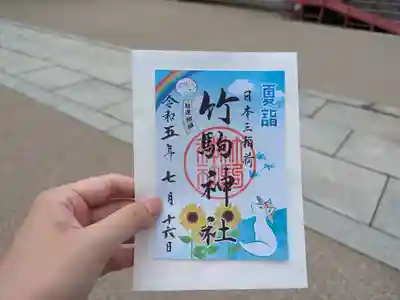 夏詣
日本三稲荷
竹駒神社
令和五年七月十六日